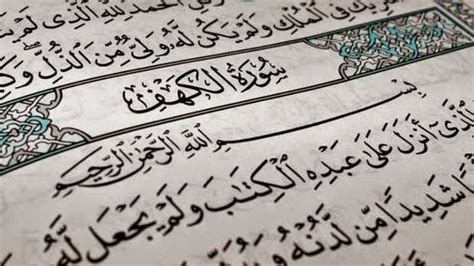 ٱلْحَمْدُ لِلَّهِ ٱلَّذِى لَمْ
شَرِيكٌ فِى ٱلْمُلْكِ وَلَمْ يَكُن لَّهُۥ وَلِىٌّ مِّنَ ٱلذُّلِّ
سُورَةُ ٱلْكَهْفِ
بِسْمِ ٱللَّهِ ٱلرَّحْمَٰنِ ٱلرَّحِيمِ
ٱلَّذِىٓ أَنزَلَ عَلَىٰ عَبْدِهِ ٱلْكِتَٰبَ وَلَمْ يَجْعَل لَّهُۥ
شَدِيدًا مِّن لَّدُنْهُ